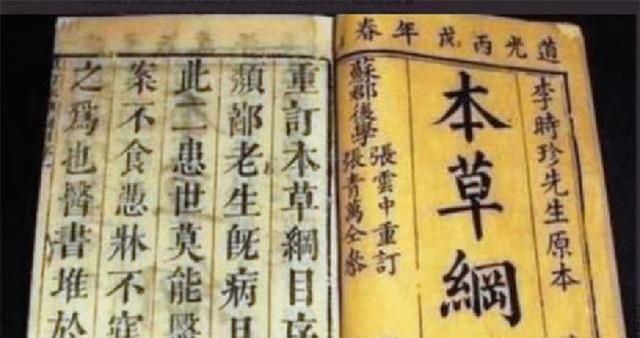 道光丙戌年春
李時珍先生原本
本草綱
蘇郡後學
張雲中重訂
張青萬仝參
重訂本草綱目序
類鄙老生旣病且
此二患世莫能醫
案不食慿牀不
之爲也醫書堆於